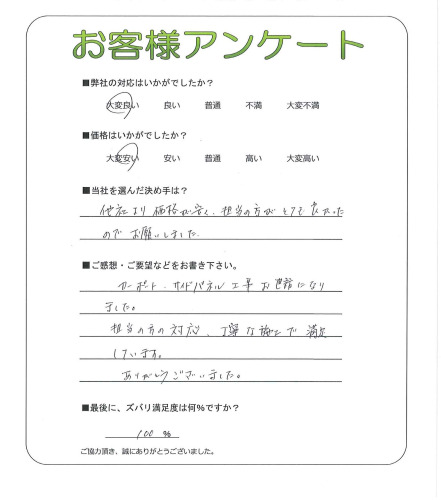 お客様アンケート
■弊社の対応はいかがでしたか？
大変良い 良い 普通 不満 大変不満
■価格はいかがでしたか？
大変安い 安い 普通 高い 大変高い
■当社を選んだ決め手は？
他社より価格が安く、担当の方がとても良かった
のでお願いしました。
■ご感想・ご要望などをお書き下さい。
カーポート、サイドパネル工事お世話になり
ました。
担当の方の対応、丁寧な施工で満足
しています。
ありがとうございました。
■最後に、ズバリ満足度は何％ですか？
100 ％
ご協力頂き、誠にありがとうございました。